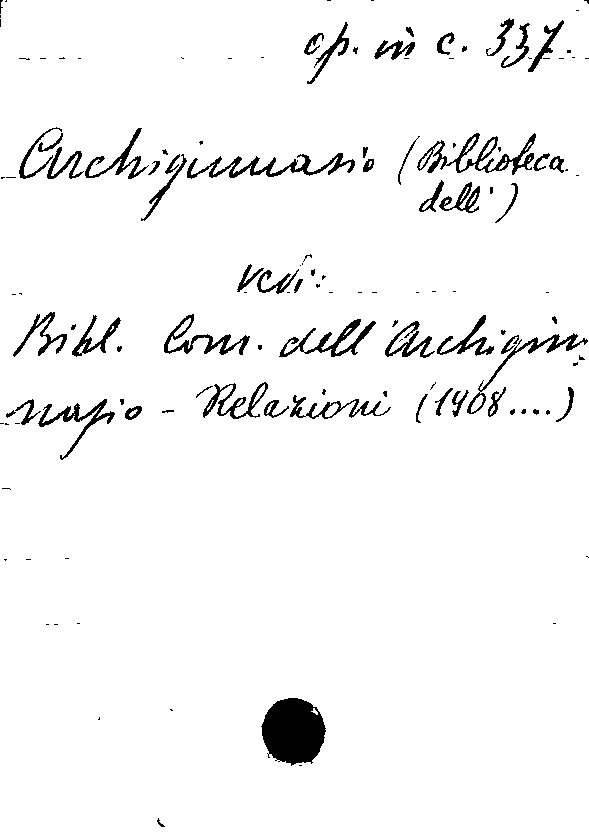 op. in c. 337.
Archiginnasio (Biblioteca
dell')
vedi:
Bibl. Com. dell'Archigin-
nasio - Relazioni (1908....)